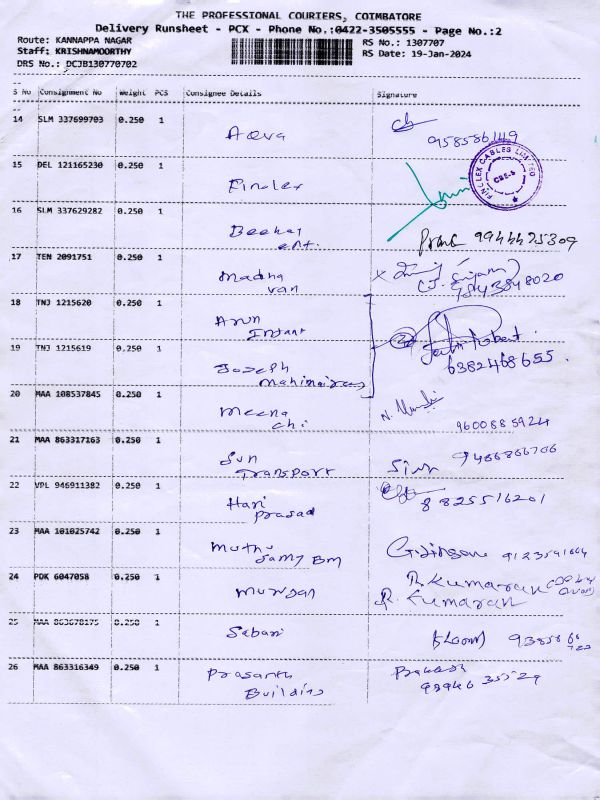 THE PROFESSIONAL COURIERS, COIMBATORE
Delivery Runsheet - PCX - Phone No.:0422-3505555 - Page No.:2
Route: KANNAPPA NAGAR
Staff: KRISHNAMOORTHY
DRS No.: DCJB130770702
RS No.: 1307707
RS Date: 19-Jan-2024
S No Consignment No Weight PCS Consignee Details Signature
14 SLM 337699703 0.250 1
9585586149
15 DEL 121165230 0.250 1 Finolex
FINOLEX CABLES LIMITED
CBE-6
16 SLM 337629282 0.250 1
ent.
9944475309
17 TEN 2091751 0.250 1 Madha
van
9843848020
18 TNJ 1215620 0.250 1 Arun
Infant
2
19 TNJ 1215619 0.250 1 Joseph
6382468655.
20 MAA 108537845 0.250 1 Meena
chi
9600885924
21 MAA 863317163 0.250 1 Sun
Transport
9466866706
22 VPL 946911382 0.250 1 Hari
prasad
8825516201
23 MAA 101025742 0.250 1 Muthu
Samy BM
9123591664
24 PDK 6047058 0.250 1 Murugan
R. Kumaran
R. Kumaran
25 MAA 863678175 0.250 1 Sabari
26 MAA 863316349 0.250 1 Prasanth
Building